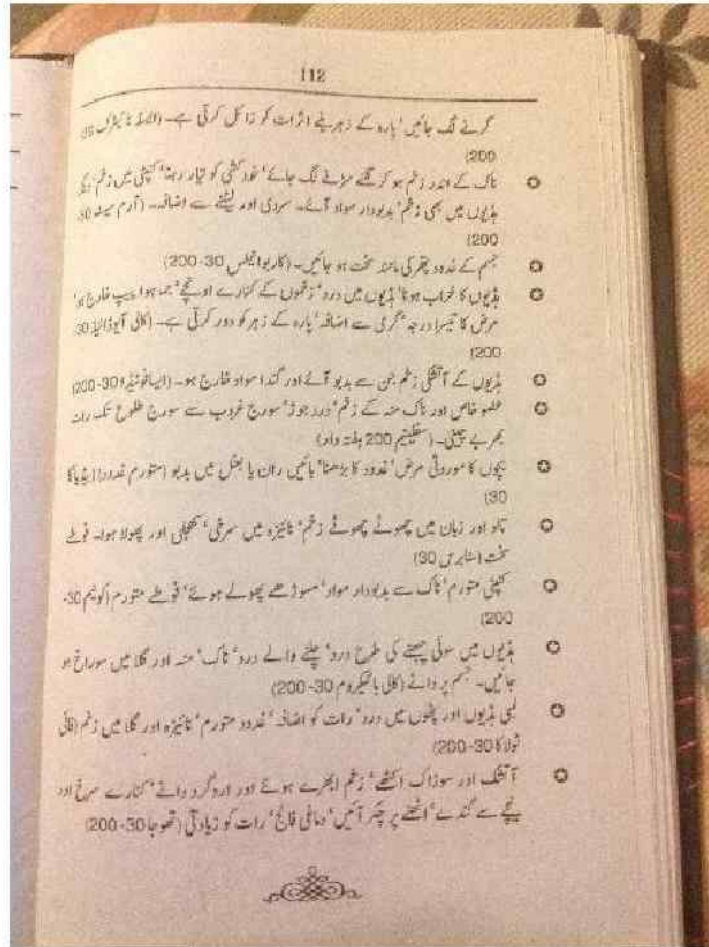 112
گرنے لگ جائیں' پارہ کے زہریلے اثرات کو زائل کرتی ہے۔ (ایسڈ نائیٹرک 30
200)
ناک کے اندر زخم ہو کر گلنے سڑنے لگ جائے' خودکشی کو تیار رہنا' کنپٹی میں زخم'
ہڈیوں میں بھی زخم' بدبودار مواد آئے۔ سردی اور لیٹنے سے اضافہ۔ (آرم میٹ 30
200)
جسم کے غدود پتھر کی مانند سخت ہو جائیں۔ (کاربوانیملس 30-200)
ہڈیوں کا خراب ہونا' ہڈیوں میں درد' زخموں کے کنارے اونچے' جما ہوا پیپ خارج ہو'
مرض کا تیسرا درجہ' گرمی سے اضافہ' پارہ کے زہر کو دور کرتی ہے۔ (کالی آیوڈائیڈ 30
200)
ہڈیوں کے آتشکی زخم جن سے بدبو آئے اور گندا مواد خارج ہو۔ (ایسافوئٹیڈا 30-200)
عضو خاص اور ناک منہ کے زخم' درد جوڑ' سورج غروب سے سورج طلوع تک رات
بھر بے چینی۔ (سفلینم 200 ہفتہ وار)
بچوں کا موروثی مرض' غدود کا بڑھنا' بائیں ران یا بغل میں بدبو (متورم غدود) (بڈیاگا
30)
تالو اور زبان میں چھوٹے چھوٹے زخم' نائیزہ میں سرخی' کھجلی اور پھولا ہوا۔ فوطے
سخت (سنابرس 30)
کنپٹی متورم' ناک سے بدبودار مواد' مسوڑھے پھولے ہوئے' فوطے متورم (کونیم 30-
200)
ہڈیوں میں سوئی چبھنے کی طرح درد' چلنے والے درد' ناک' منہ اور گلا میں سوراخ ہو
جائیں۔ جسم پر دانے (کالی بائیکروم 30-200)
لمبی ہڈیوں اور پٹھوں میں درد' رات کو اضافہ' غدود متورم' نائیزہ اور گلا میں زخم (فائی
ٹولاکا 30-200)
آتشک اور سوزاک اکٹھے' زخم ابھرے ہوئے اور اردگرد دانے' کنارے سرخ اور
نیچے سے گندے' اٹھنے پر چکر آئیں' دماغی فالج' رات کو زیادتی (تھوجا 30-200)